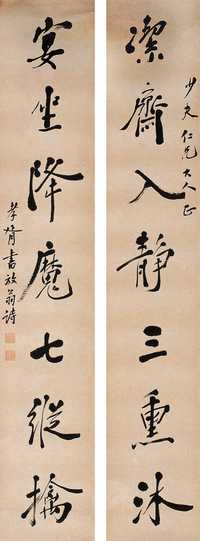 潔齋入靜三熏沐
少夫仁兄大人正
宴坐降魔七縱擒
孝胥書放翁詩